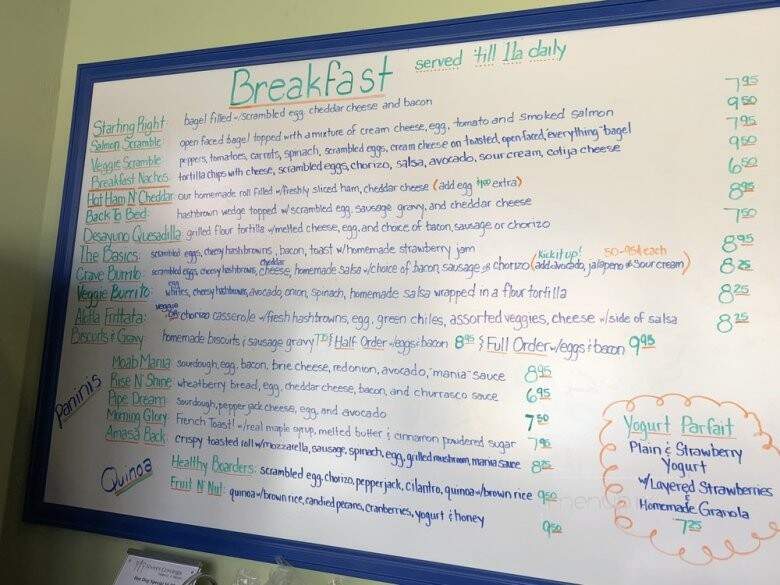 Breakfast served till 11a daily
Starting Right: bagel filled w/scrambled egg cheddar cheese and bacon 7.95
Salmon Scramble: open faced bagel topped with a mixture of cream cheese, egg, tomato and smoked salmon 9.50
Veggie Scramble: peppers, tomatoes, carrots, spinach, scrambled eggs, cream cheese on toasted, open faced, everything bagel 7.95
Breakfast Nachos: tortilla chips with cheese, scrambled eggs, chorizo, salsa, avocado, sour cream, cotija cheese 9.50
Hot Ham N' Cheddar: our homemade roll filled w/freshly sliced ham, cheddar cheese (add egg extra) 6.50
Back To Bed: hashbrown wedge topped w/scrambled egg, sausage gravy, and cheddar cheese 8.95
Desayuno Quesadilla: grilled flour tortilla w/melted cheese, egg, and choice of bacon, sausage or chorizo 7.50
The Basics: scrambled eggs, cheesy hashbrowns, bacon, toast w/homemade strawberry jam 8.95
Kick it up! 50-95¢ each
Crave Burrito: scrambled eggs, cheesy hashbrowns, cheddar cheese, homemade salsa w/choice of bacon, sausage or chorizo (add avocado, jalapeño or sour cream) 8.25
Veggie Burrito: egg whites, cheesy hashbrowns, avocado, onion, spinach, homemade salsa wrapped in a flour tortilla 8.25
Aletta Frittata: veggie or chorizo casserole w/fresh hashbrowns, egg, green chiles, assorted veggies, cheese w/side of salsa 8.25
Biscuits & Gravy: homemade biscuits & sausage gravy 7.25 & Half Order w/eggs & bacon 8.95 & Full Order w/eggs & bacon 9.95
Paninis
Moab Mania: sourdough, egg, bacon, brie cheese, red onion, avocado, "mania" sauce 8.95
Rise N' Shine: wheatberry bread, egg, cheddar cheese, bacon, and churrasco sauce 6.95
Pipe Dream: sourdough, pepper jack cheese, egg, and avocado 7.50
Morning Glory: French Toast! w/real maple syrup, melted butter & cinnamon powdered sugar 7.95
Amasa Back: crispy toasted roll w/mozzarella, sausage, spinach, egg, grilled mushroom, mania sauce 8.25
Quinoa
Healthy Boarders: scrambled egg, chorizo, pepperjack, cilantro, quinoa w/brown rice 9.50
Fruit N' Nut: quinoa w/brown rice, candied pecans, cranberries, yogurt & honey 9.50
Yogurt Parfait
Plain & Strawberry
Yogurt
w/Layered Strawberries
&
Homemade Granola
7.25